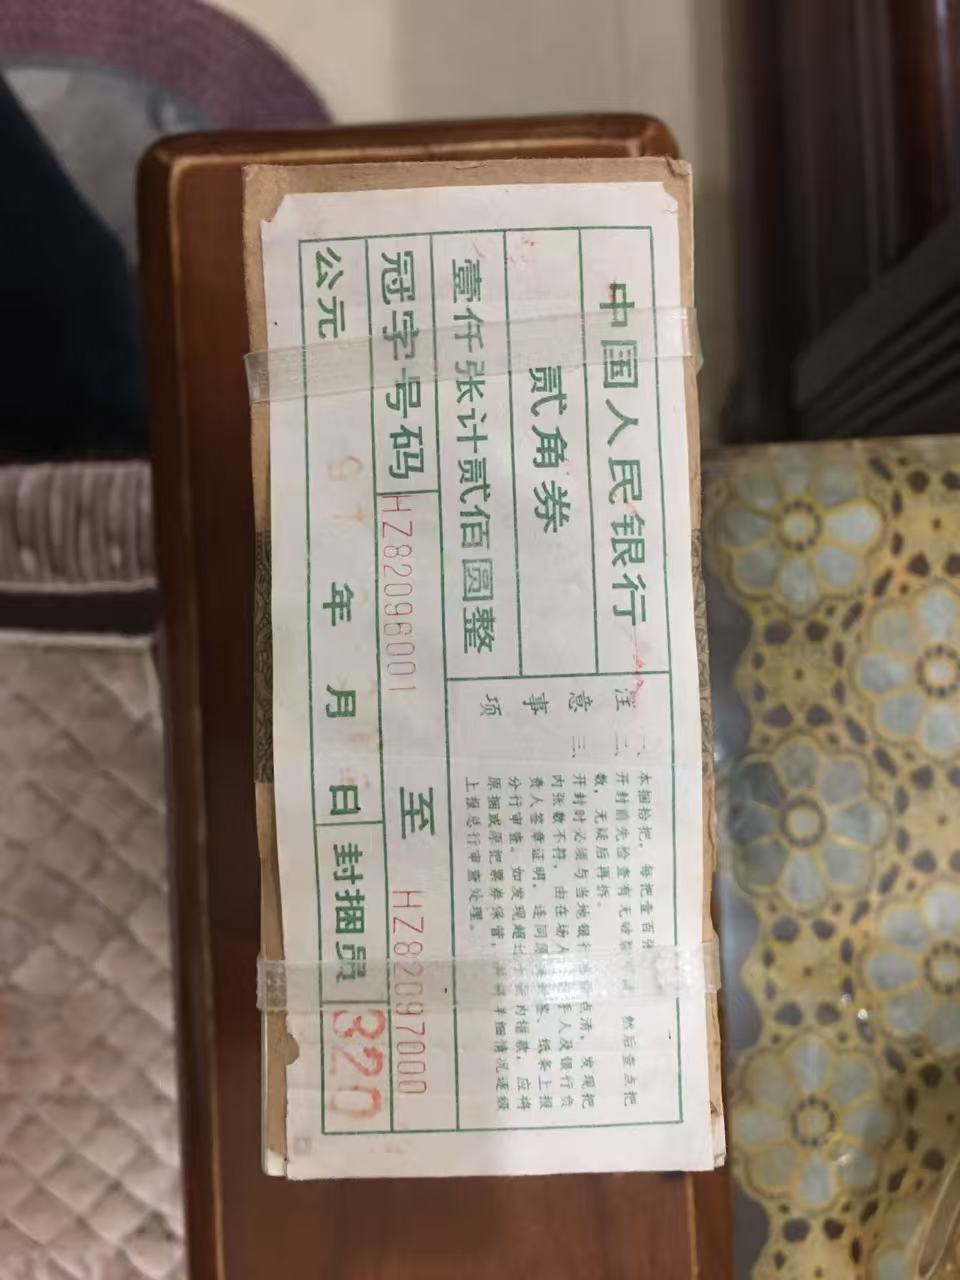 中国人民银行
贰角券
壹仟张计贰佰圆整
冠字号码 HZ82096001 至 HZ82097000
公元 97 年 月 日 封捆员 320
注意事项
一、本捆拾把，每把壹百张
二、开封前先检查有无破裂 然后查点把
数，无疑后再拆。
三、开封时必须与当地银行 点清，发现把
内张数不符，由在场人 手人及银行负
责人签章证明，连同原 签、纸条上报
分行审查。如发现超过 内错款，应将
原捆或原把票券保管， 详细情况逐级
上报总行审查处理。